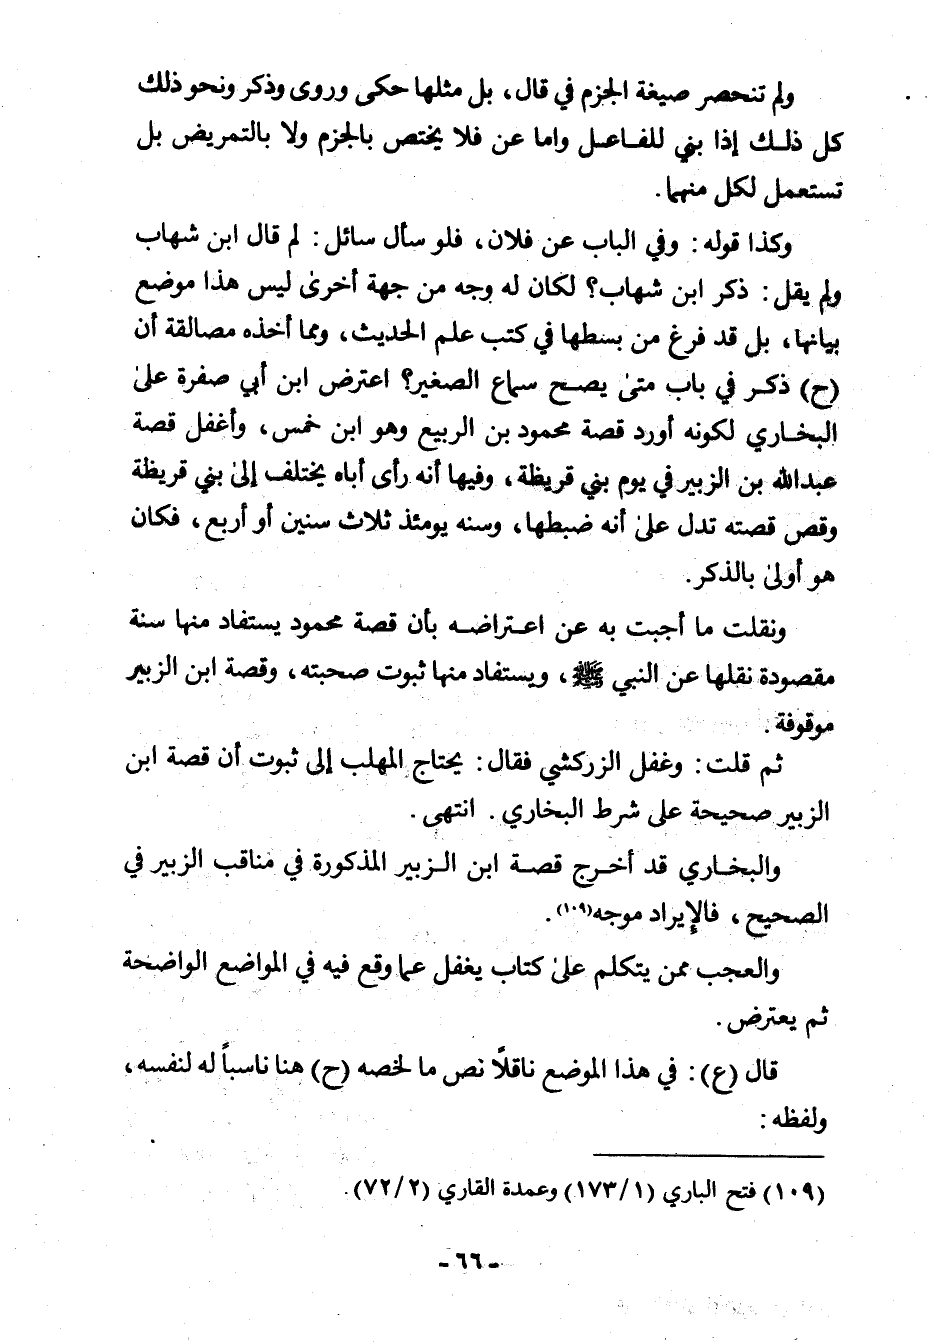 ولم تنحصر صيغة الجزم في قال، بل مثلها حكى وروى وذكر ونحو ذلك
كل ذلك إذا بني للفاعل واما عن فلا يختص بالجزم ولا بالتمريض بل
تستعمل لكل منهما.
وكذا قوله: وفي الباب عن فلان، فلو سأل سائل: لم قال ابن شهاب
ولم يقل: ذكر ابن شهاب؟ لكان له وجه من جهة أخرىٰ ليس هذا موضع
بيانها، بل قد فرغ من بسطها في كتب علم الحديث، ومما أخذه مصالقة أن
(ح) ذكر في باب متىٰ يصح سماع الصغير؟ اعترض ابن أبي صفرة علىٰ
البخاري لكونه أورد قصة محمود بن الربيع وهو ابن خمس، وأغفل قصة
عبدالله بن الزبير في يوم بني قريظة، وفيها أنه رأى أباه يختلف إلىٰ بني قريظة
وقص قصته تدل علىٰ أنه ضبطها، وسنه يومئذ ثلاث سنين أو أربع، فكان
هو أولىٰ بالذكر.
ونقلت ما أجبت به عن اعتراضه بأن قصة محمود يستفاد منها سنة
مقصودة نقلها عن النبي ﷺ، ويستفاد منها ثبوت صحبته، وقصة ابن الزبير
موقوفة.
ثم قلت: وغفل الزركشي فقال: يحتاج المهلب إلى ثبوت أن قصة ابن
الزبير صحيحة على شرط البخاري. انتهى.
والبخاري قد أخرج قصة ابن الزبير المذكورة في مناقب الزبير في
الصحيح، فالإيراد موجه(١٠٩).
والعجب ممن يتكلم علىٰ كتاب يغفل عما وقع فيه في المواضع الواضحة
ثم يعترض.
قال (ع): في هذا الموضع ناقلًا نص ما لخصه (ح) هنا ناسباً له لنفسه،
ولفظه:
(١٠٩) فتح الباري (١/١٧٣) وعمدة القاري (٢/٧٢).
- ٦٦ -